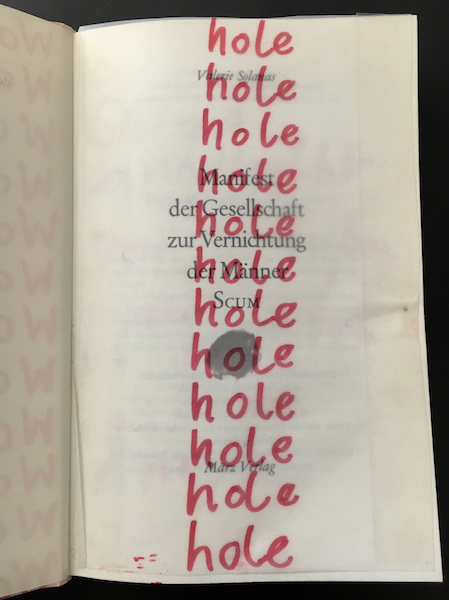 hole
Valerie Solanas
hole
hole
Manifest
hole
der Gesellschaft
hole
zur Vernichtung
hole
der Männer
SCUM
hole
hole
hole
hole
März Verlag
hole
hole